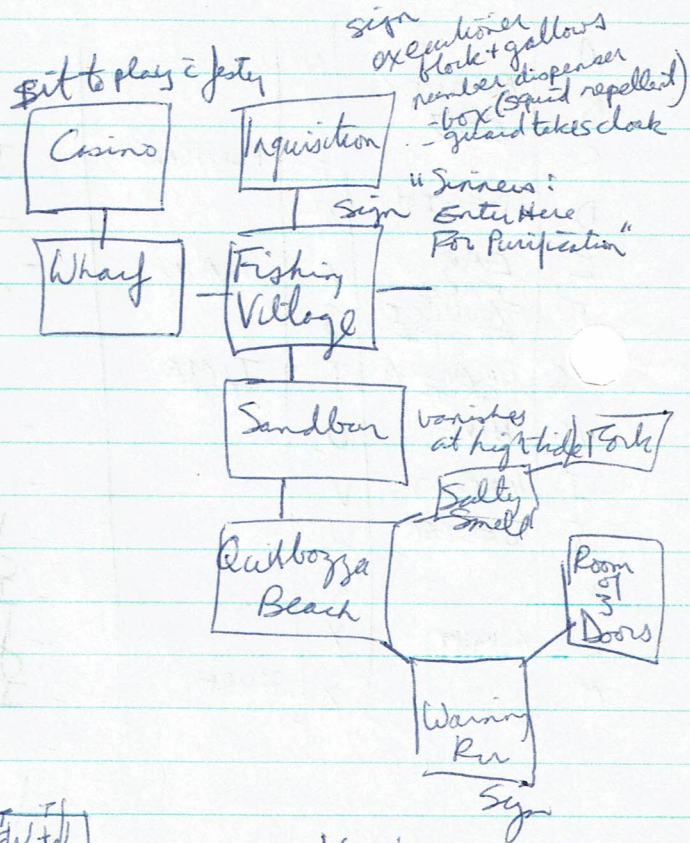 sign
executioner
block + gallows
number dispenser
- box (squid repellent)
- guard takes cloak
to play c̄ Jester
Casino
Inquisition
"Sinners:
Enter Here
For Purification"
sign
Wharf
Fishing
Village
Sandbar
vanishes
at high tide
Fork
Salty
Smell
Quilbozza
Beach
Room
of
3
Doors
Warning
Rm
Sign